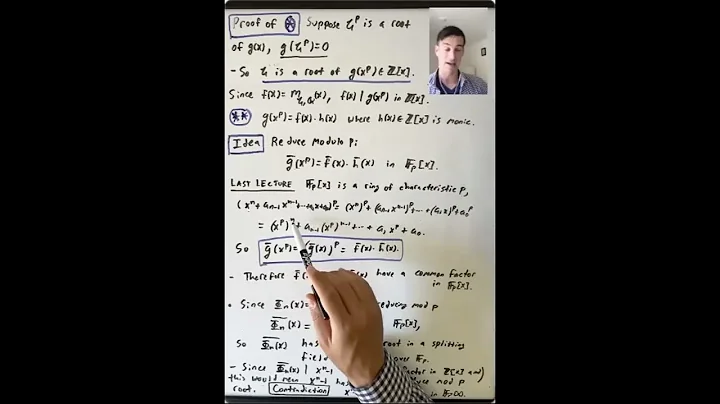 Proof of ⊛ Suppose ζ^p is a root
of g(x), g(ζ^p)=0
- So ζ is a root of g(x^p) ∈ ℤ[x].
Since f(x)= m_{ζ,ℚ}(x), f(x) | g(x^p) in ℤ[x].
** g(x^p)=f(x)·h(x) where h(x)∈ℤ[x] is monic.
Idea Reduce Modulo p:
g̅(x^p)= f̅(x)· h̅(x) in 𝔽_p[x].
LAST LECTURE 𝔽_p[x] is a ring of characteristic p,
(x^n + a_{n-1} x^{n-1}+...+a_1x+a_0)^p = (x^n)^p + (a_{n-1}x^{n-1})^p +...+ (a_1x)^p + a_0^p
= (x^p)^n + a_{n-1}(x^p)^{n-1}+...+ a_1 x^p + a_0.
So g̅(x^p)= (g̅(x))^p = f̅(x)·h̅(x).
- Therefore f̅ (x) have a common factor
in 𝔽_p[x].
• Since Φ_n(x)= reducing mod p
Φ̅_n(x) = 𝔽_p[x],
So Φ̅_n(x) has root in a splitting
field over 𝔽_p.
- Since Φ̅_n(x) | x^n-1 factor in ℤ[x] and
this would mean x^n-1 has mod p
root. Contradiction in 𝔽_p[x].